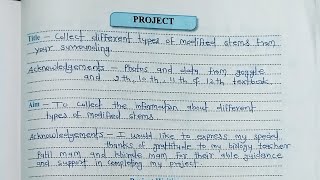 PROJECT
Title - Collect different types of modified stems from
your surrounding.
Acknowledgements - Photos and data from google
and 9th, 10th, 11th of 12th textbook.
Aim - To collect the information about different
types of modified stems.
Acknowledgements - I would like to express my special
thanks of gratitude to my biology teacher
Patil mam and mam for their able guidance
and support in completing my project.